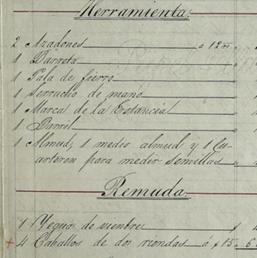 Herramienta.
2 Azadones á 12
1 Barreta
1 Pala de fierro
1 Serrucho de mano
1 Marca de la Estancia
1 Barril
1 Almud, 1 medio almud y 1 Cu-
arteron para medir Semillas
Remuda.
1 Yegua de vientre $
4 Caballos de dos riendas á $15 6